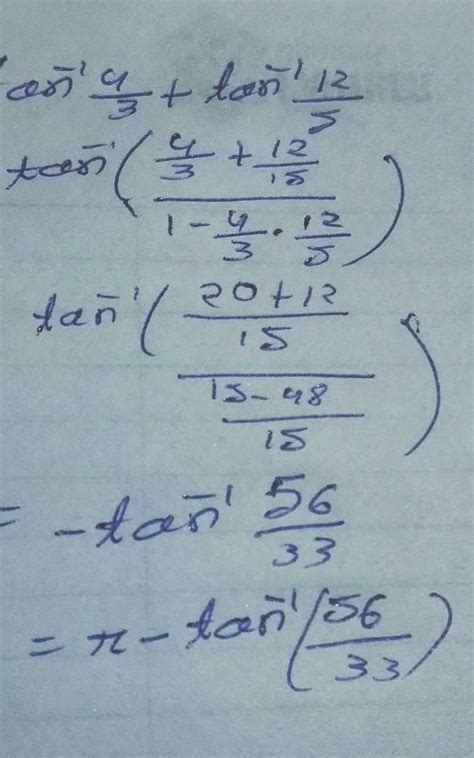 tan⁻¹ 4/3 + tan⁻¹ 12/5
tan⁻¹ ( (4/3 + 12/15) / (1 - 4/3 · 12/5) )
tan⁻¹ ( ((20+12)/15) / ((15-48)/15) )
= -tan⁻¹ 56/33
= π - tan⁻¹ (56/33)